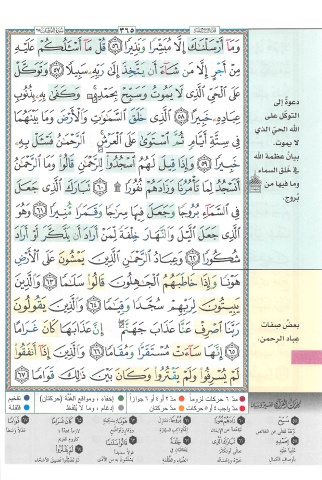 ٣٦٥
وَمَآ أَرْسَلْنَٰكَ إِلَّا مُبَشِّرًا وَنَذِيرًا ٥٦ قُلْ مَآ أَسْـَٔلُكُمْ عَلَيْهِ
مِنْ أَجْرٍ إِلَّا مَن شَآءَ أَن يَتَّخِذَ إِلَىٰ رَبِّهِۦ سَبِيلًا ٥٧ وَتَوَكَّلْ
عَلَى ٱلْحَىِّ ٱلَّذِى لَا يَمُوتُ وَسَبِّحْ بِحَمْدِهِۦ ۚ وَكَفَىٰ بِهِۦ بِذُنُوبِ
عِبَادِهِۦ خَبِيرًا ٥٨ ٱلَّذِى خَلَقَ ٱلسَّمَٰوَٰتِ وَٱلْأَرْضَ وَمَا بَيْنَهُمَا
فِى سِتَّةِ أَيَّامٍ ثُمَّ ٱسْتَوَىٰ عَلَى ٱلْعَرْشِ ۚ ٱلرَّحْمَٰنُ فَسْـَٔلْ بِهِۦ
خَبِيرًا ٥٩ وَإِذَا قِيلَ لَهُمُ ٱسْجُدُوا۟ لِلرَّحْمَٰنِ قَالُوا۟ وَمَا ٱلرَّحْمَٰنُ
أَنَسْجُدُ لِمَا تَأْمُرُنَا وَزَادَهُمْ نُفُورًا ۩ ٦٠ تَبَارَكَ ٱلَّذِى جَعَلَ
فِى ٱلسَّمَآءِ بُرُوجًا وَجَعَلَ فِيهَا سِرَٰجًا وَقَمَرًا مُّنِيرًا ٦١ وَهُوَ
ٱلَّذِى جَعَلَ ٱلَّيْلَ وَٱلنَّهَارَ خِلْفَةً لِّمَنْ أَرَادَ أَن يَذَّكَّرَ أَوْ أَرَادَ
شُكُورًا ٦٢ وَعِبَادُ ٱلرَّحْمَٰنِ ٱلَّذِينَ يَمْشُونَ عَلَى ٱلْأَرْضِ
هَوْنًا وَإِذَا خَاطَبَهُمُ ٱلْجَٰهِلُونَ قَالُوا۟ سَلَٰمًا ٦٣ وَٱلَّذِينَ
يَبِيتُونَ لِرَبِّهِمْ سُجَّدًا وَقِيَٰمًا ٦٤ وَٱلَّذِينَ يَقُولُونَ
رَبَّنَا ٱصْرِفْ عَنَّا عَذَابَ جَهَنَّمَ ۖ إِنَّ عَذَابَهَا كَانَ غَرَامًا
٦٥ إِنَّهَا سَآءَتْ مُسْتَقَرًّا وَمُقَامًا ٦٦ وَٱلَّذِينَ إِذَآ أَنفَقُوا۟
لَمْ يُسْرِفُوا۟ وَلَمْ يَقْتُرُوا۟ وَكَانَ بَيْنَ ذَٰلِكَ قَوَامًا ٦٧
دعوة إلى
التوكل على
الله الحي الذي
لا يموت.
بيان عظمة الله
في خلق السماء
وما فيها من
بُروج.
بعض صفات
عباد الرحمن.
مدّ ٦ حركات لزوماً مدّ ٢ أو ٤ أو ٦ جوازاً إخفاء، ومواقع الغُنَّة (حركتان) تفخيم
مدّ واجب ٤ أو ٥ حركات مدّ حركتان إدغام، وما لا يُلفظ قلقلة